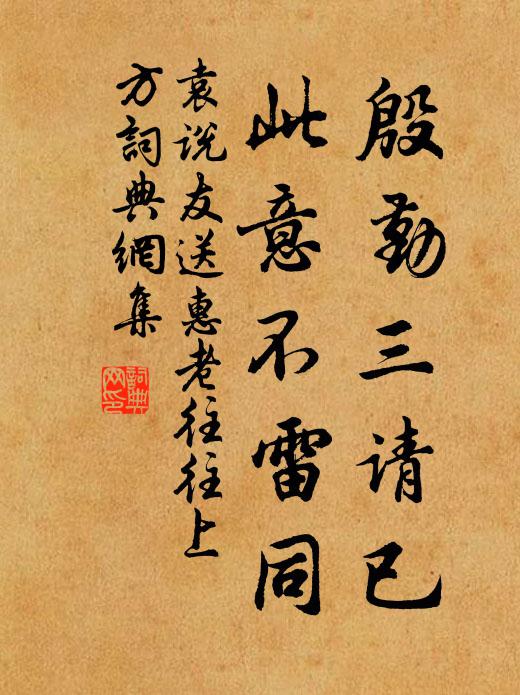 殷勤三请已
此意不雷同
袁说友送惠老往往上
方詞典網集
詞典网印